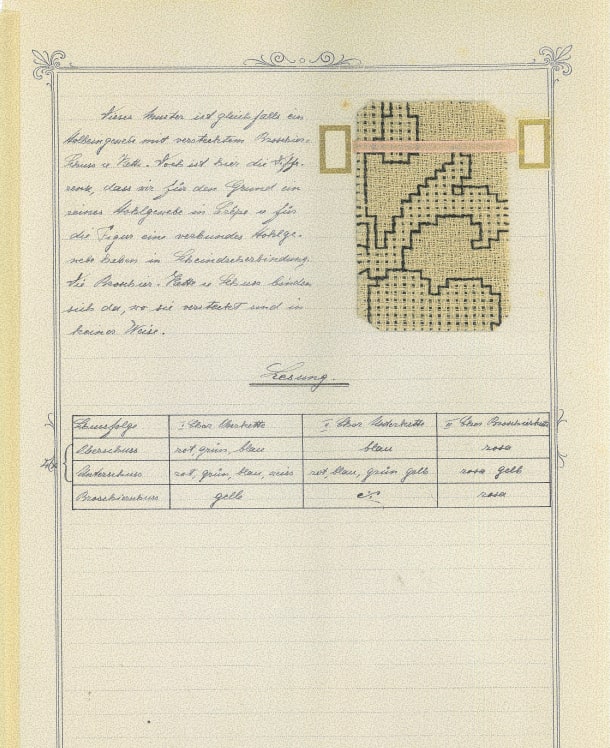 Dieses Muster ist gleichfalls ein
Hohlgewebe mit verstecktem Broschier-
Schuss u. Kette. Doch ist hier die Diffe-
renz, dass wir für den Grund ein
reines Hohlgewebe in Crêpe u. für
die Figur eine verbundes Hohlge-
webe haben in Scheindreherbindung.
Die Broschier-Kette u. Schuss binden
sich da, wo sie versteckt sind in
keiner Weise.
Lesung.
Schussfolge I Chor Oberkette I Chor Unterkette II Chor Broschierkette
Oberschuss rot, grün, blau blau rosa
Unterschuss rot, grün, blau, weiss rot, blau, grün gelb rosa gelb
Broschierschuss gelb rosa